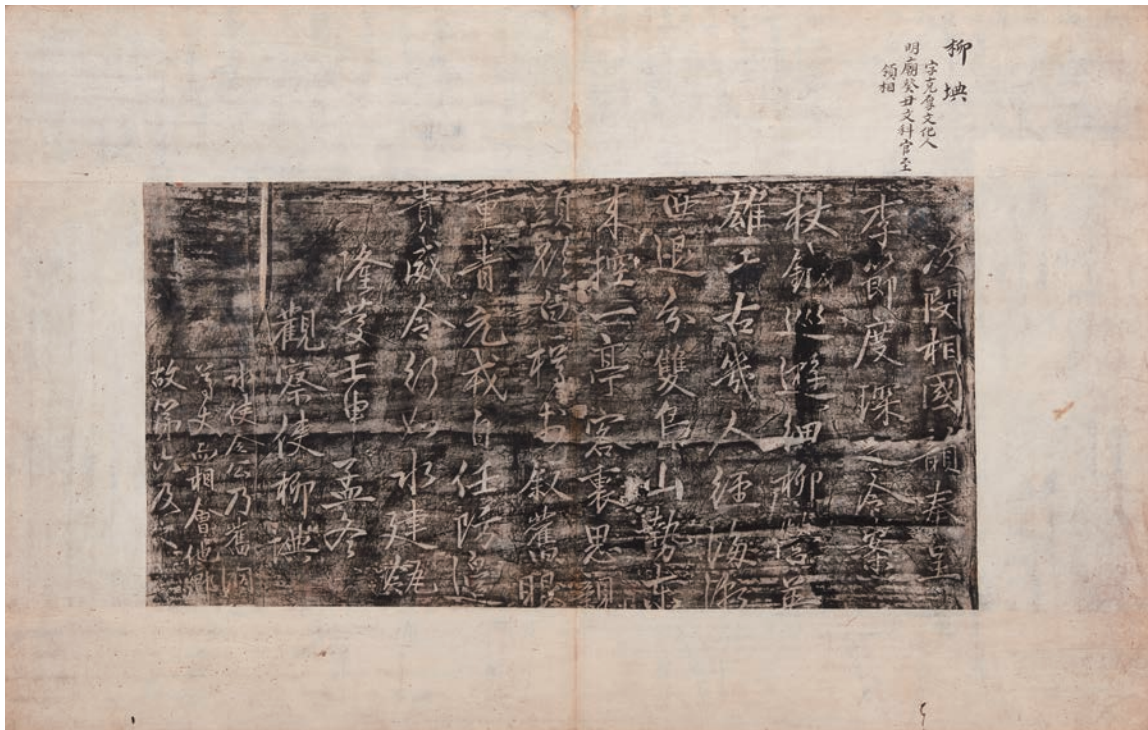 柳㙉
字克厚文化人
明廟癸丑文科官至
領相
次閔相國韻奉呈
李節度琛之令案
杖鉞巡邊細柳營英
雄亡古幾人經海
西迴分雙鳥山勢東
來控一亭客裏思親
頭欲白樽叙舊眼
重靑元戎自任防邊
責威令行如水建瓴
隆慶壬申孟冬
觀察使柳㙉
水使令公乃舊
相會
故第六及之